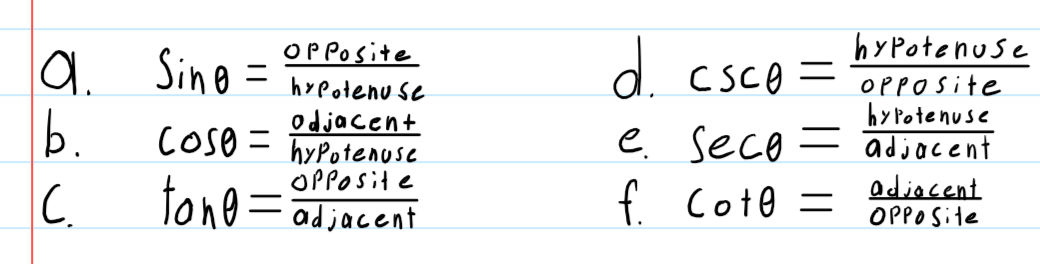 a. Sinθ = opposite/hypotenuse
b. cosθ = adjacent/hypotenuse
c. tanθ = opposite/adjacent
d. cscθ = hypotenuse/opposite
e. secθ = hypotenuse/adjacent
f. cotθ = adjacent/opposite